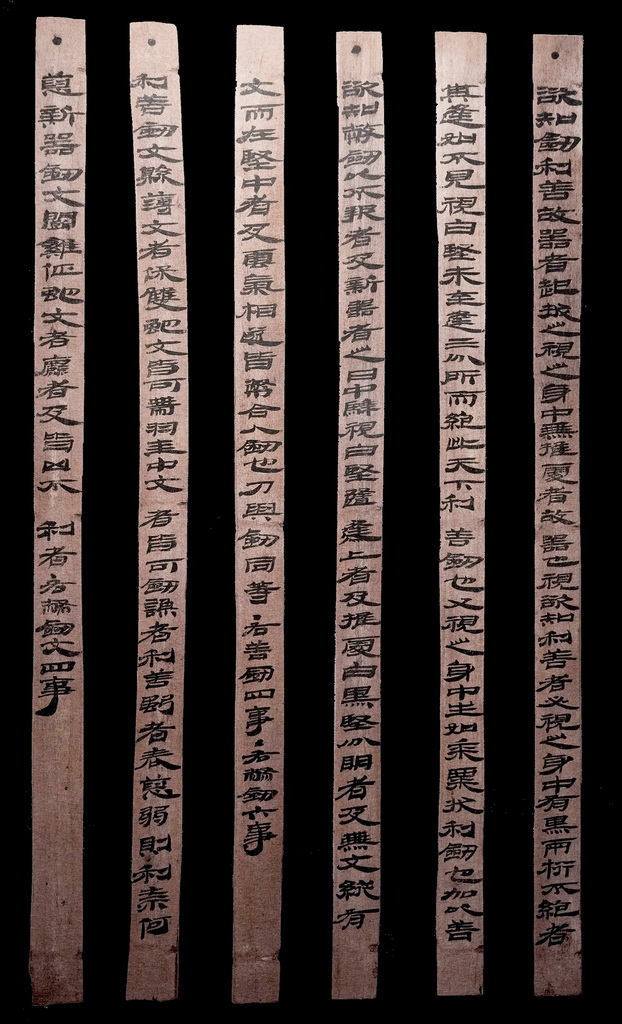 欲知劒利善故器者起拔之視之身中無推處者故器也視欲知利善者必視之身中有黑兩桁不絕者
其逢如不見視白堅未至逢三分所而絕此天下利善劒也又視之身中生如黍粟狀利劒也加以善
欲知幣劒以不報者及新器者之日中騂視白堅隨逢上者及推處白黑堅分明者及無文縱有
文而在堅中者及雲氣相遂皆幣合人劒也刀與劒同等・右善劒四事・右幣劒六事
利善劒文縣薄文者保雙蛇文皆可帶羽圭中文者皆可劒謙者利善強者表惡弱則利奈何
惡新器劒文鬬雞佂蛇文者者及皆凶不利者・右幣劒文四事